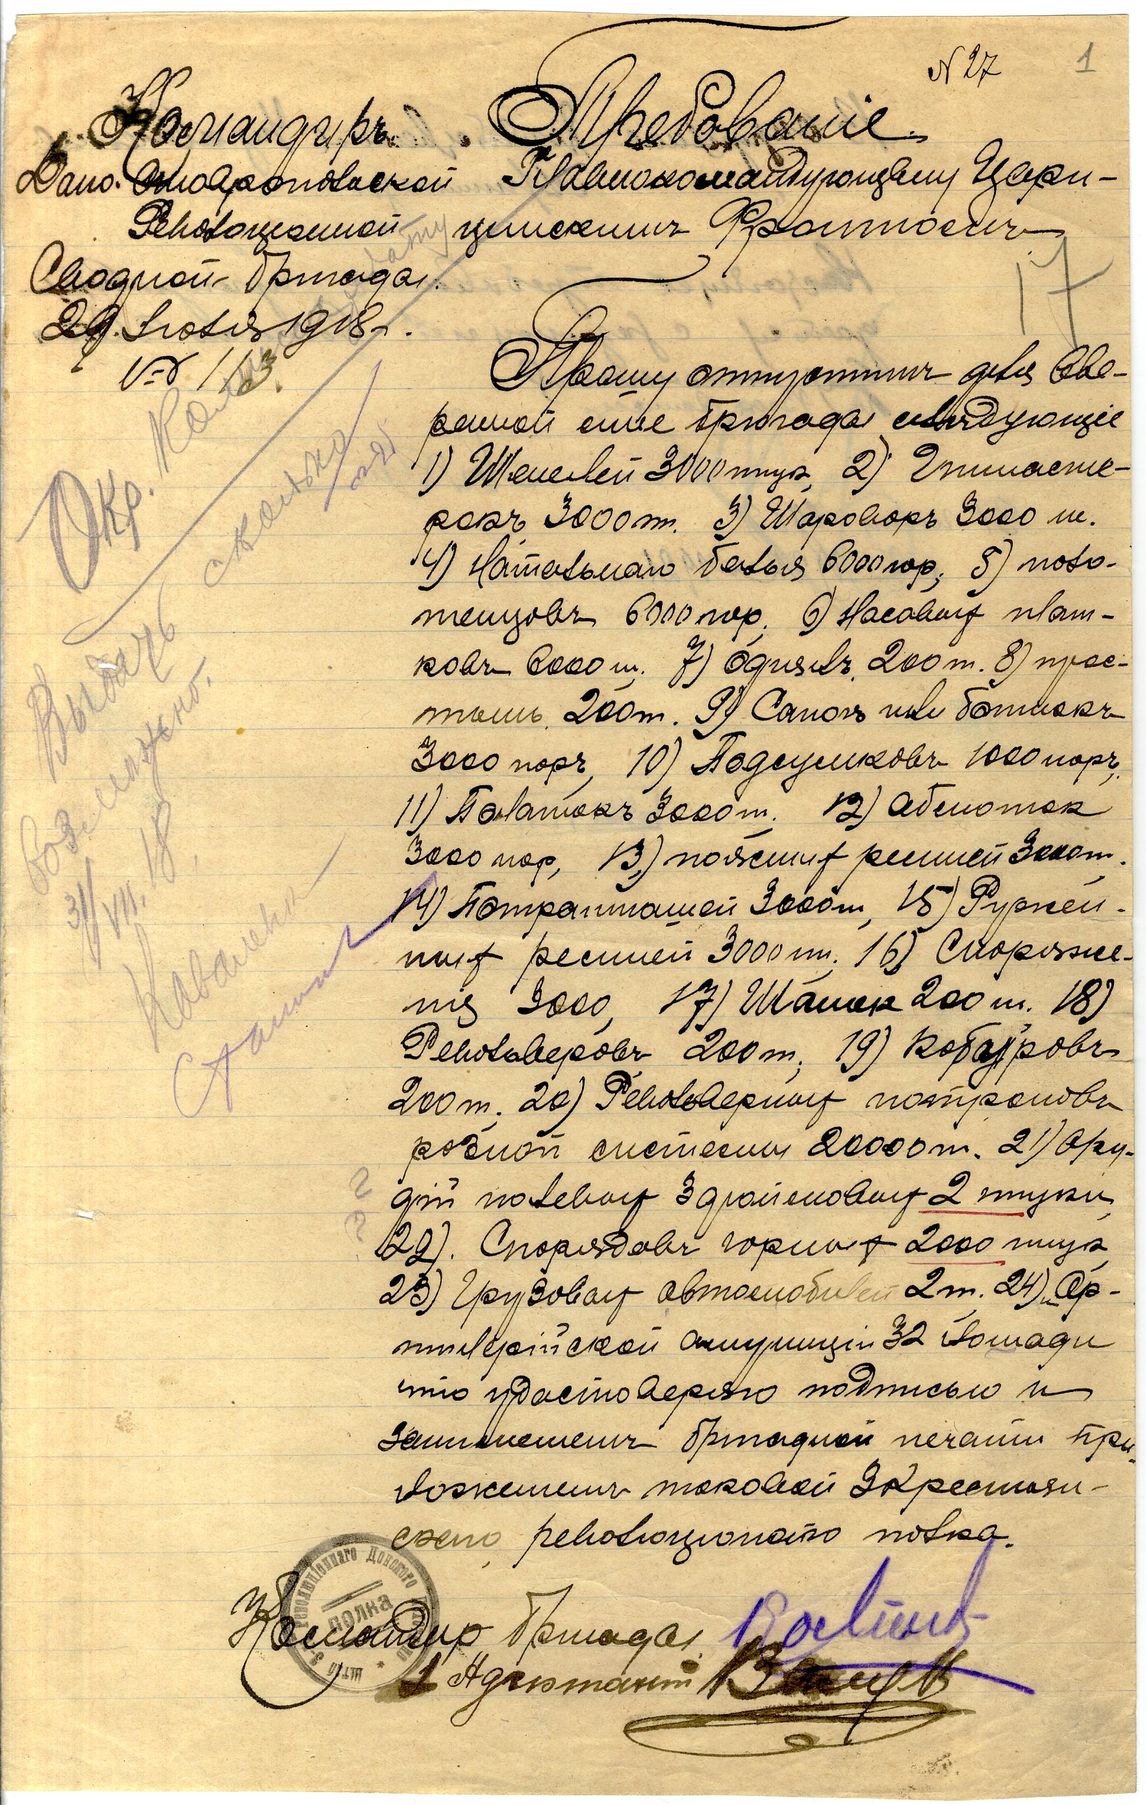 N 27
1
Командиръ
Доно-Ставропольской
Революціонной
Сводной Бригады.
29. Іюля 1918 г.
№ 113.
Требованіе.
Главнокомандующему Цари-
цинскимъ Фронтомъ
17
Прошу отпустить для Вве-
ренной мне бригады следующіе
1) Шинелей 3000 штук, 2) Гимнасте-
рокъ 3000 ш. 3) Шароваръ 3000 ш.
4) Нательнаго белья 6000 пар, 5) поло-
тенцовъ 6000 пар, 6) Насовых плат-
ковъ 6000 ш. 7) Одиялъ 200 ш. 8) прос-
тынь 200 ш. 9) Сапогъ или ботинокъ
3000 паръ, 10) Подсумковъ 1000 паръ,
11) Палатокъ 3000 ш. 12) Абмоток
3000 пар, 13) поясных ремней 3000 ш.
14) Патранташей 3000 ш, 15) Ружей-
ных ремней 3000 ш. 16) Снаряже-
ния 3000, 17) Шашек 200 ш. 18)
Револьверовъ 200 ш, 19) Кобуровъ
200 ш. 20) Револьверных патроновъ
розной системы 20000 ш. 21) Ору-
дій полевых 3 дюймовых 2 штуки,
22). Снарядовъ горных 2000 штук
23) Грузовых автомобилей 2 ш. 24) Ар-
тилерійской амуниціи 32 лошади
что удастоверяю подписью и
приложением бригадной печати при-
ложением таковой 3 Крестьян-
скаго революционаго полка.
Командир Бригады
1 Адъютант
Окр. Ком
Выдать сколько
возможно.
31/VII. 18
Коваленко
Сталин
? ?
полка